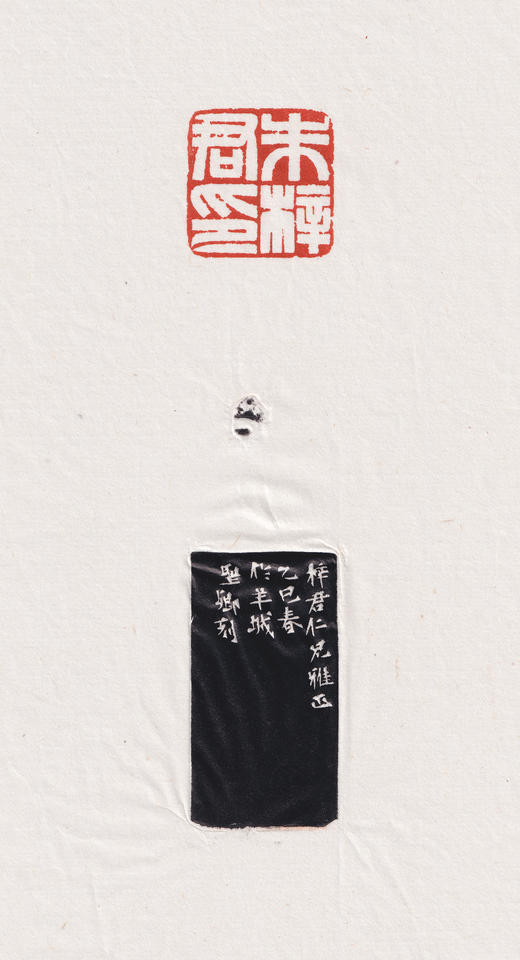 朱梓
君印
梓君仁兄雅正
乙巳春
於羊城
聖卿刻